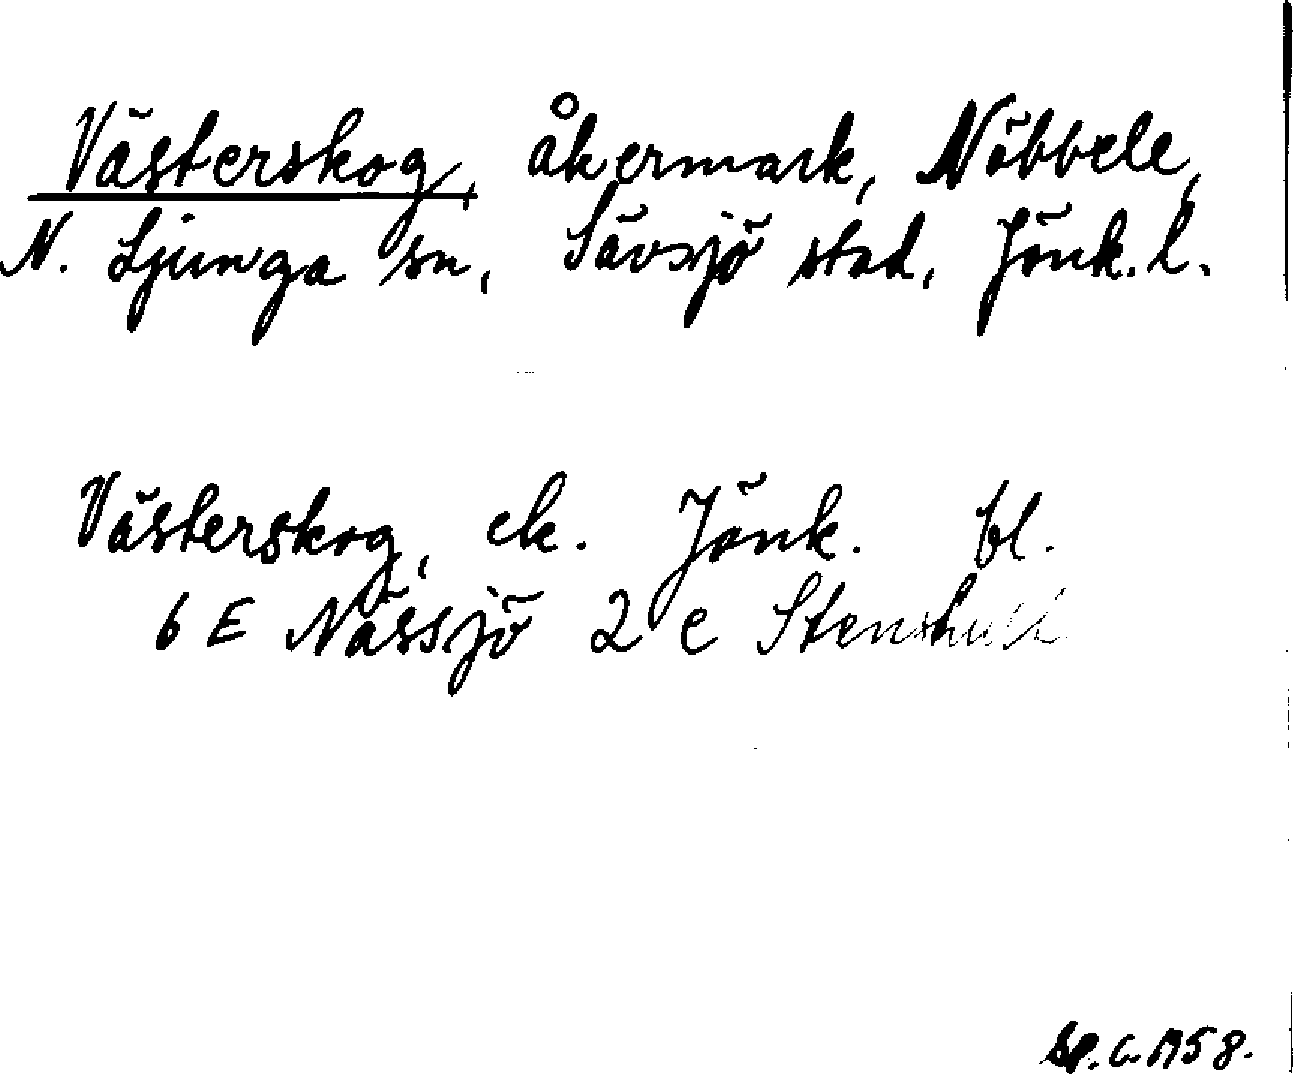 Västerskog, åkermark, Nöbbele,
N. Ljunga sn, Sävsjö stad, Jönk. l.
Västerskog, ek. Jönk. bl.
6 E Nässjö 2 e Stenshult
1958.